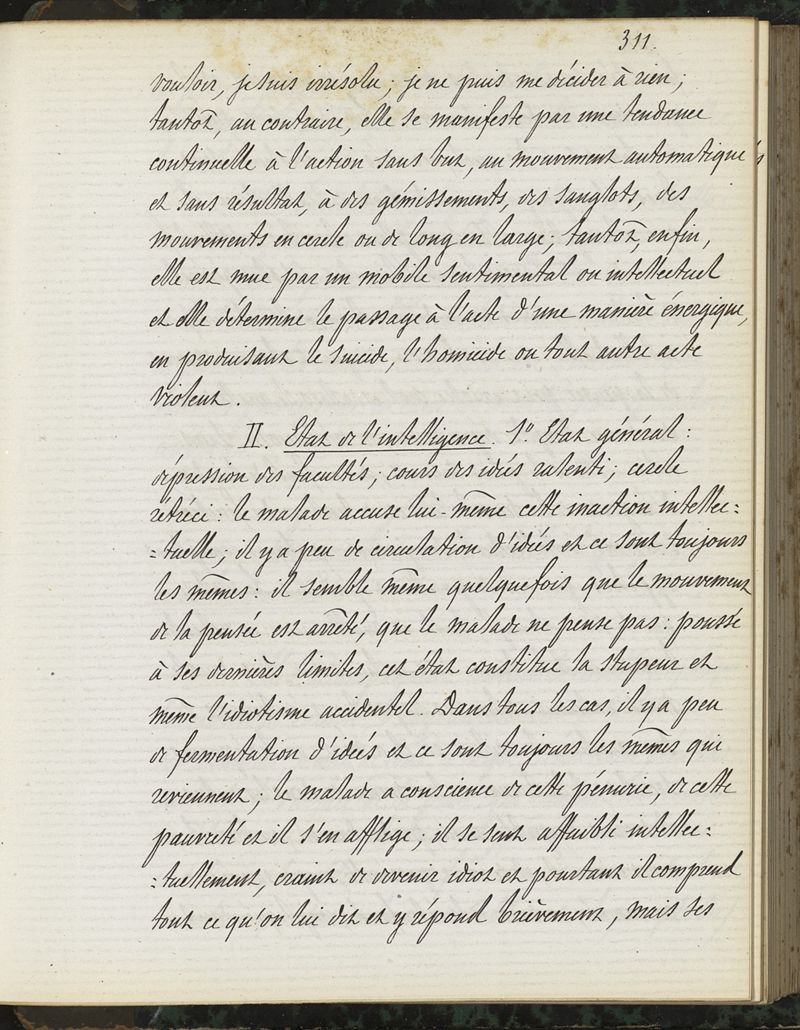 311.
vouloir, je suis irrésolu; je ne puis me décider à rien;
tantôt, au contraire, elle se manifeste par une tendance
continuelle à l'action sans but, au mouvement automatique
et sans résultat, à des gémissements, des sanglots, des
mouvements en cercle ou de long en large; tantôt, enfin,
elle est mue par un mobile sentimental ou intellectuel
et elle détermine le passage à l'acte d'une manière énergique,
en produisant le suicide, l'homicide ou tout autre acte
violent.
II. Etat de l'intelligence. 1º Etat général:
dépression des facultés; cours des idées ralenti; cercle
rétréci: le malade accuse lui-même cette inaction intellec=
=tuelle; il y a peu de circulation d'idées et ce sont toujours
les mêmes: il semble même quelquefois que le mouvement
de la pensée est arrêté, que le malade ne pense pas: poussé
à ses dernières limites, cet état constitue la stupeur et
même l'idiotisme accidentel. Dans tous les cas, il y a peu
de fermentation d'idées et ce sont toujours les mêmes qui
reviennent; le malade a conscience de cette pénurie, de cette
pauvreté et il s'en afflige; il se sent affaibli intellec=
=tuellement, craint de devenir idiot et pourtant il comprend
tout ce qu'on lui dit et y répond brièvement, mais ses